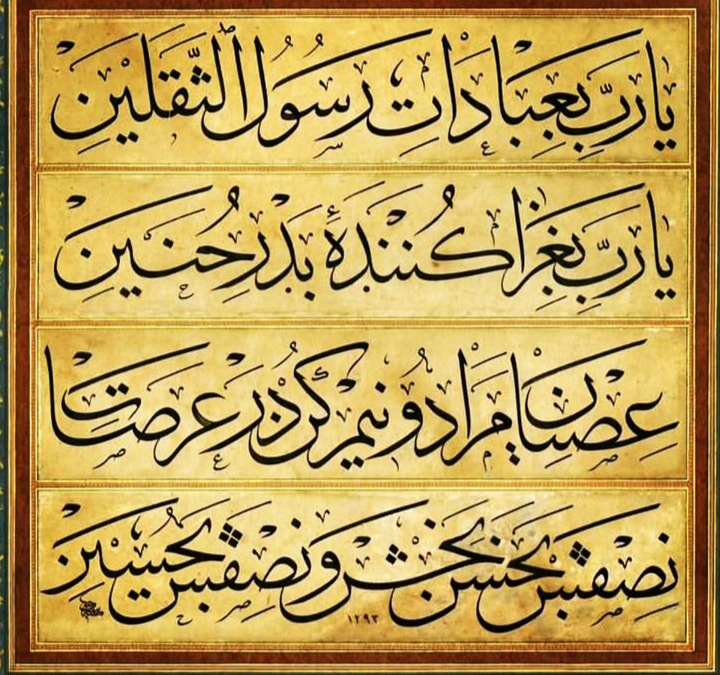 یَا رَبِّ بِعِبَادَاتِ رَسُولِ الثَّقَلَیْن
یَا رَبِّ بِغِزَا كُنَنْدَۀٔ بَدْرِ حُنَیْن
عِصْیَانِ مَرَا دُو نِیم كُن دَرْ عَرَصَات
نِصْفَش بَحَسَن بَخْش و نِصْفَش بَحُسَیْن
١٢٩٣